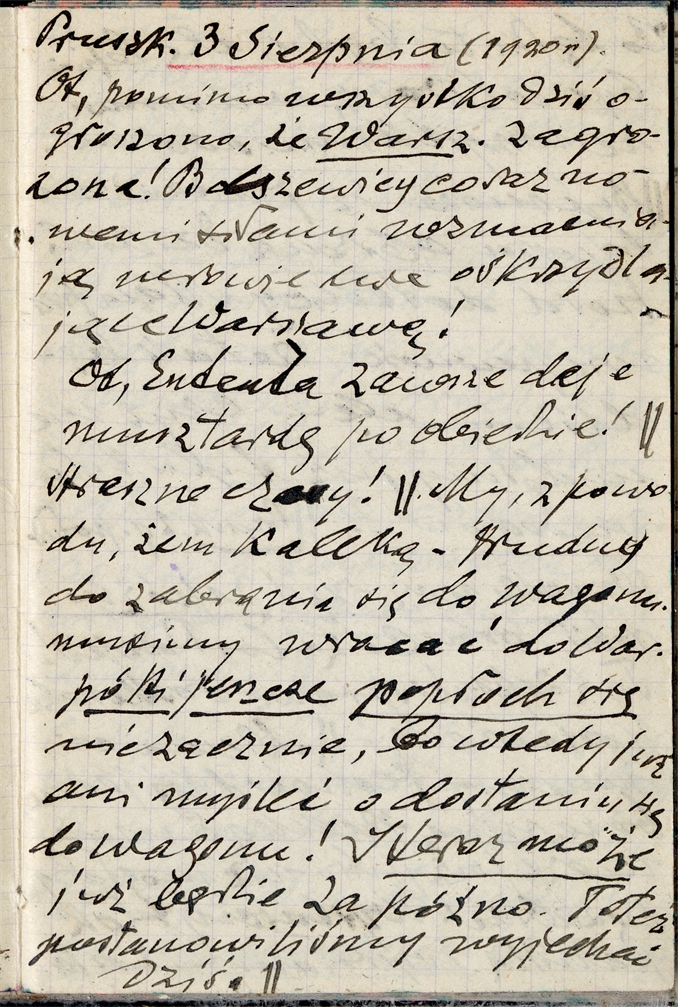 Pruszk. 3 Sierpnia (1920 r).
Ot, pomimo wszystko dziś o-
głoszono, że Warsz. zagro-
żona! Bolszewicy coraz no-
wemi siłami wzmacnia-
ją nerwowie swe oskrzydla-
jące Warszawę!
Ot, Ententa zawsze daje
musztardę po obiedzie! ||
Straszne czasy! || My, z powo-
du, żem kaleką - trudną
do zabrania się do wagonu.
musimy wracać do War.
póki jeszcze popłoch się
nie zacznie, bo wtedy już
ani myśleć o dostaniu się
do wagonu! I teraz może
już będzie za późno. Toteż
postanowiliśmy wyjechać
Dziś. ||